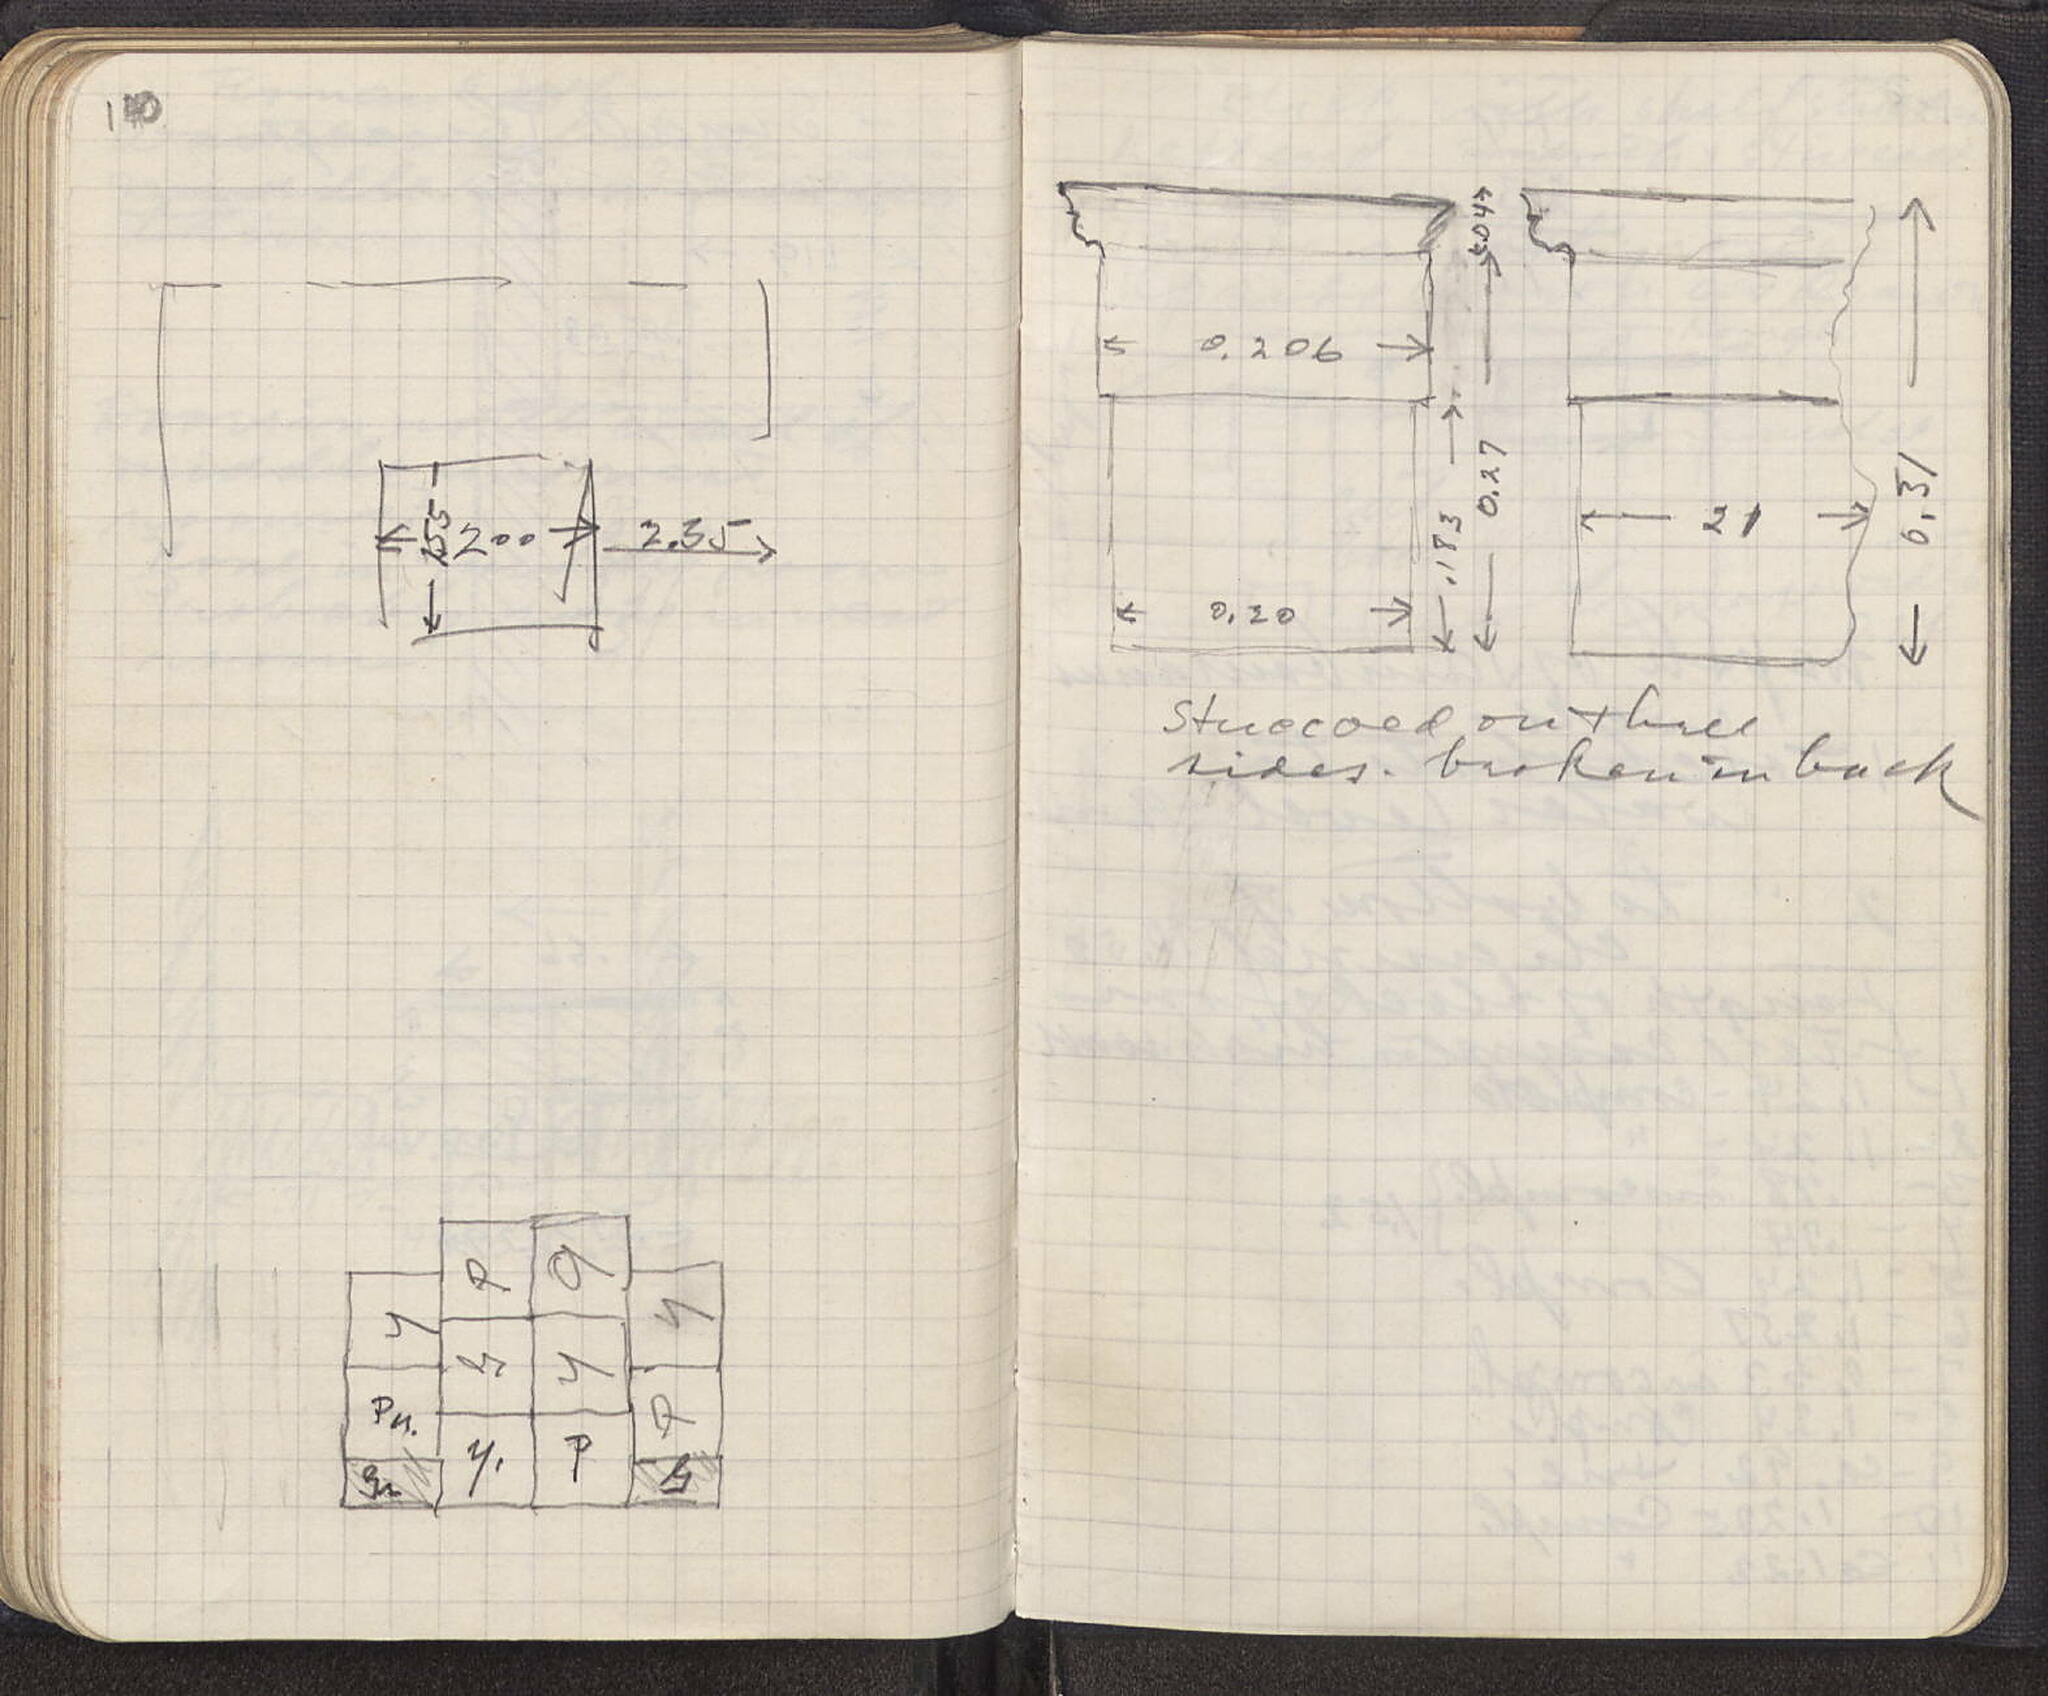 110
155
200
2.35
y
P
P
y
Pu.
y
y
P
y.
P
.04
0.206
0.27
.183
0.20
21
0.31
Stuccoed on three
sides. broken in back